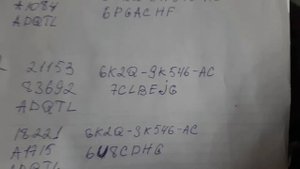 A1084 6PGACHF
ADQTL
21153 6K2Q-9K546-AC
83692 7CLBEJG
ADQTL
18221 6K2Q-9K546-AC
A1715 648CDHG
ADQTL